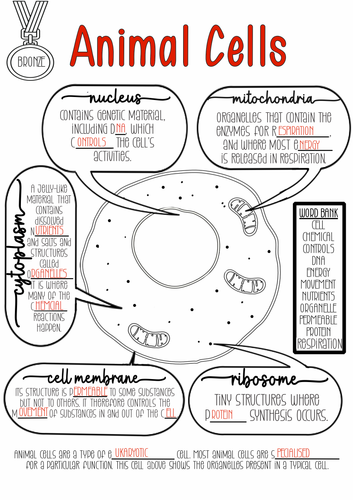 BRONZE
Animal Cells
nucleus
CONTAINS GENETIC MATERIAL,
INCLUDING DNA, WHICH
CONTROLS THE CELL'S
ACTIVITIES.
mitochondria
ORGANELLES THAT CONTAIN THE
ENZYMES FOR RESPIRATION,
AND WHERE MOST ENERGY
IS RELEASED IN RESPIRATION.
cytoplasm
A JELLY-LIKE
MATERIAL THAT
CONTAINS
DISSOLVED
NUTRIENTS
AND SALTS AND
STRUCTURES
CALLED
ORGANELLES
IT IS WHERE
MANY OF THE
CHEMCIAL
REACTIONS
HAPPEN.
WORD BANK
CELL
CHEMICAL
CONTROLS
DNA
ENERGY
MOVEMENT
NUTRIENTS
ORGANELLE
PERMEABLE
PROTEIN
RESPIRATION
cell membrane
ITS STRUCTURE IS PERMEABLE TO SOME SUBSTANCES
BUT NOT TO OTHERS. IT THEREFORE CONTROLS THE
MOVEMENT OF SUBSTANCES IN AND OUT OF THE CELL
ribosome
TINY STRUCTURES WHERE
PROTEIN SYNTHESIS OCCURS.
ANIMAL CELLS ARE A TYPE OF EUKARYOTIC CELL. MOST ANIMAL CELLS ARE SPECIALISED
FOR A PARTICULAR FUNCTION. THIS CELL ABOVE SHOWS THE ORGANELLES PRESENT IN A TYPICAL CELL.